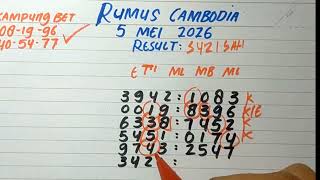 KAMPUNG BET
08-19-96
40-54-77
RUMUS CAMBODIA
5 MEI 2026
RESULT:
ML MB ML
3942:1083 K
0019:8396 K/E
6338:7452 K
5451:0174 K
9743:2547
342 :